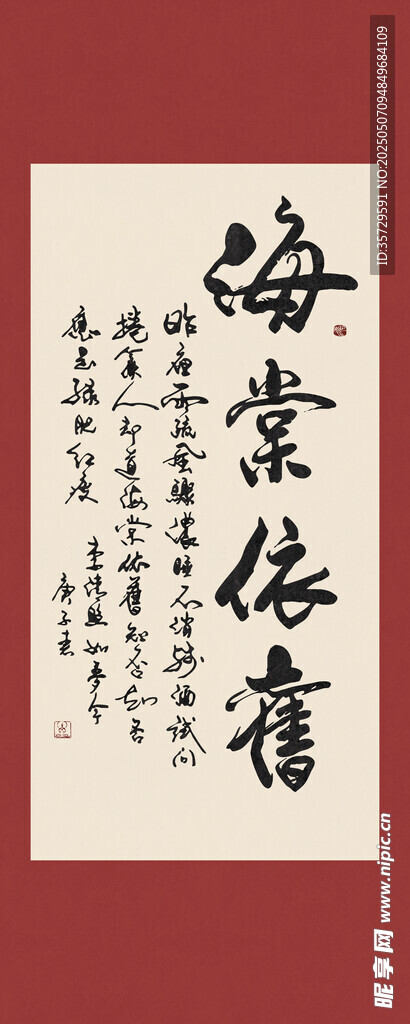 海棠依舊
昨夜雨疏風驟濃睡不消殘酒試問
捲簾人却道海棠依舊知否知否
應是綠肥紅瘦
李清照如夢令
庚子書
ID:35729591 NO:20250507094849684109
昵享网 www.nipic.cn